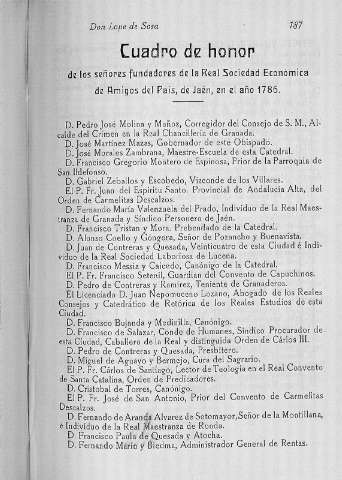 Don Lope de Sosa 187
Cuadro de honor
de los señores fundadores de la Real Sociedad Económica
de Amigos del País, de Jaén, en el año 1786.
D. Pedro José Molina y Muñoz, Corregidor del Consejo de S. M., Al-
calde del Crimen en la Real Chancillería de Granada.
D. José Martínez Mazas, Gobernador de este Obispado.
D. José Morales Zambrana, Maestre-Escuela de esta Catedral.
D. Francisco Gregorio Montero de Espinosa, Prior de la Parroquia de
San Ildefonso.
D. Gabriel Zeballos y Escobedo, Vizconde de los Villares.
El P. Fr. Juan del Espíritu Santo, Provincial de Andalucía Alta, del
Orden de Carmelitas Descalzos.
D. Fernando María Valenzuela del Prado, Individuo de la Real Maes-
tranza de Granada y Síndico Personero de Jaén.
D. Francisco Tristan y Mora, Prebendado de la Catedral.
D. Alonso Coello y Góngora, Señor de Pozancho y Buenavista.
D. Juan de Contreras y Quesada, Veinticuatro de esta Ciudad é Indi-
viduo de la Real Sociedad Laboriosa de Lucena.
D. Francisco Messía y Caicedo, Canónigo de la Catedral.
El P. Fr. Francisco Setenil, Guardian del Convento de Capuchinos.
D. Pedro de Contreras y Ramírez, Teniente de Granaderos.
El Licenciado D. Juan Nepomuceno Lozano, Abogado de los Reales
Consejos y Catedrático de Retórica de los Reales Estudios de esta
Ciudad.
D. Francisco Bujanda y Medirilla, Canónigo.
D. Francisco de Salazar, Conde de Humanes, Síndico Procurador de
esta Ciudad, Caballero de la Real y distinguida Orden de Cárlos III.
D. Pedro de Contreras y Quesada, Presbítero.
D. Miguel de Aguayo y Bermejo, Cura del Sagrario.
El P. Fr. Cárlos de Santiago, Lector de Teología en el Real Convento
de Santa Catalina, Orden de Predicadores.
D. Cristóbal de Torres, Canónigo.
El P. Fr. José de San Antonio, Prior del Convento de Carmelitas
Descalzos.
D. Fernando de Aranda Alvarez de Sotomayor, Señor de la Montillana,
é Individuo de la Real Maestranza de Ronda.
D. Francisco Paula de Quesada y Atocha.
D. Fernando María y Biedma, Administrador General de Rentas.